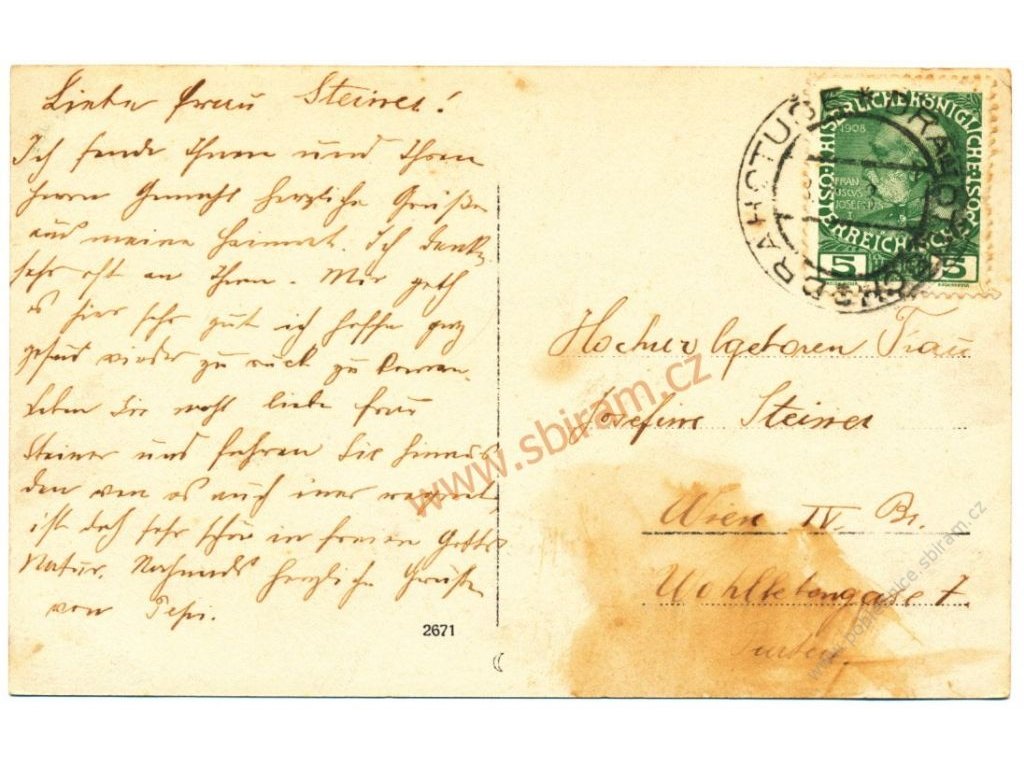 Liebe Frau Steiner!
Ich sende Ihnen und Ihren
Herrn Gemahl herzliche Grüße
aus meine Heimat. Ich denke
sehr oft an Ihnen. Mir geth
es hier sehr gut ich hoffe ganz
gesund wieder zu rück zu kommen.
Leben Sie wohl liebe Frau
Steiner und fahren Sie hinaus
den wen es auch regnet
ist doch sehr schön in freien Gottes
Natur. Nochmals herzliche Grüße
von Pepi.
2671
1908
5 5
Hochwolgeboren Frau
Josefine Steiner
Wien IV. Bz.
Wohllebengasse 7.
www.sbiram.cz
www.pohlednice.sbiram.cz